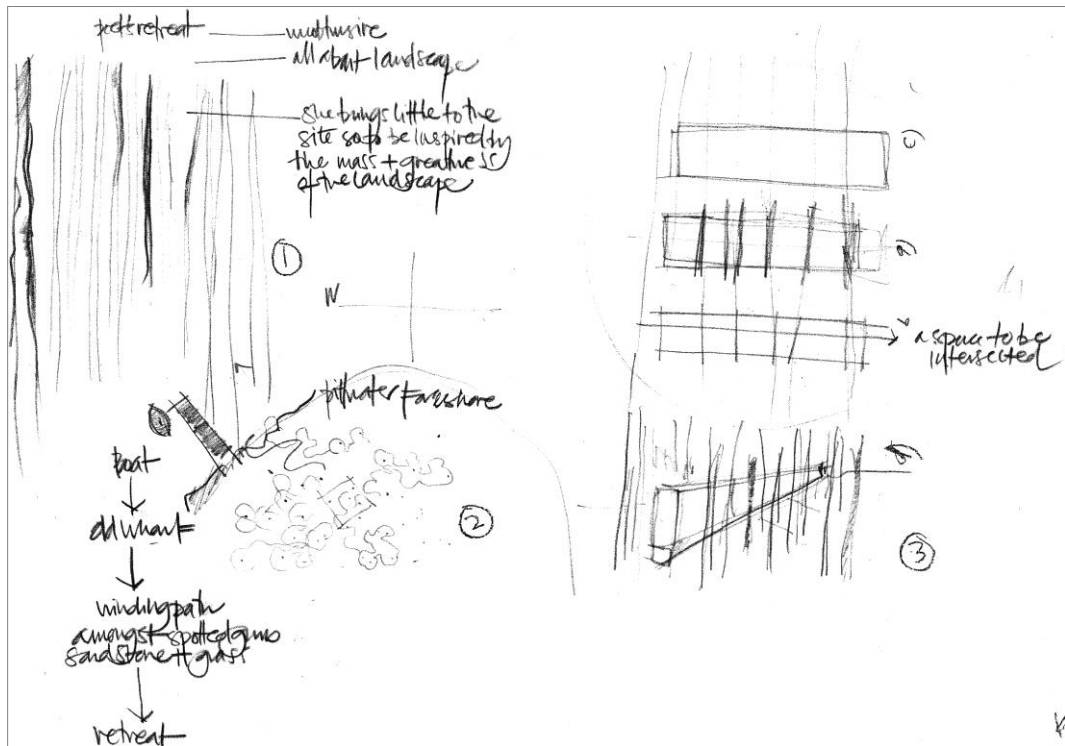 poet's retreat
all about landscape
she brings little to the
site so to be inspired by
the mass + greatness
of the landscape
①
N
pittwater foreshore
②
Boat
old wharf
winding path
amongst spotted gums
sandstone + grass
retreat
a space to be
intersected
③